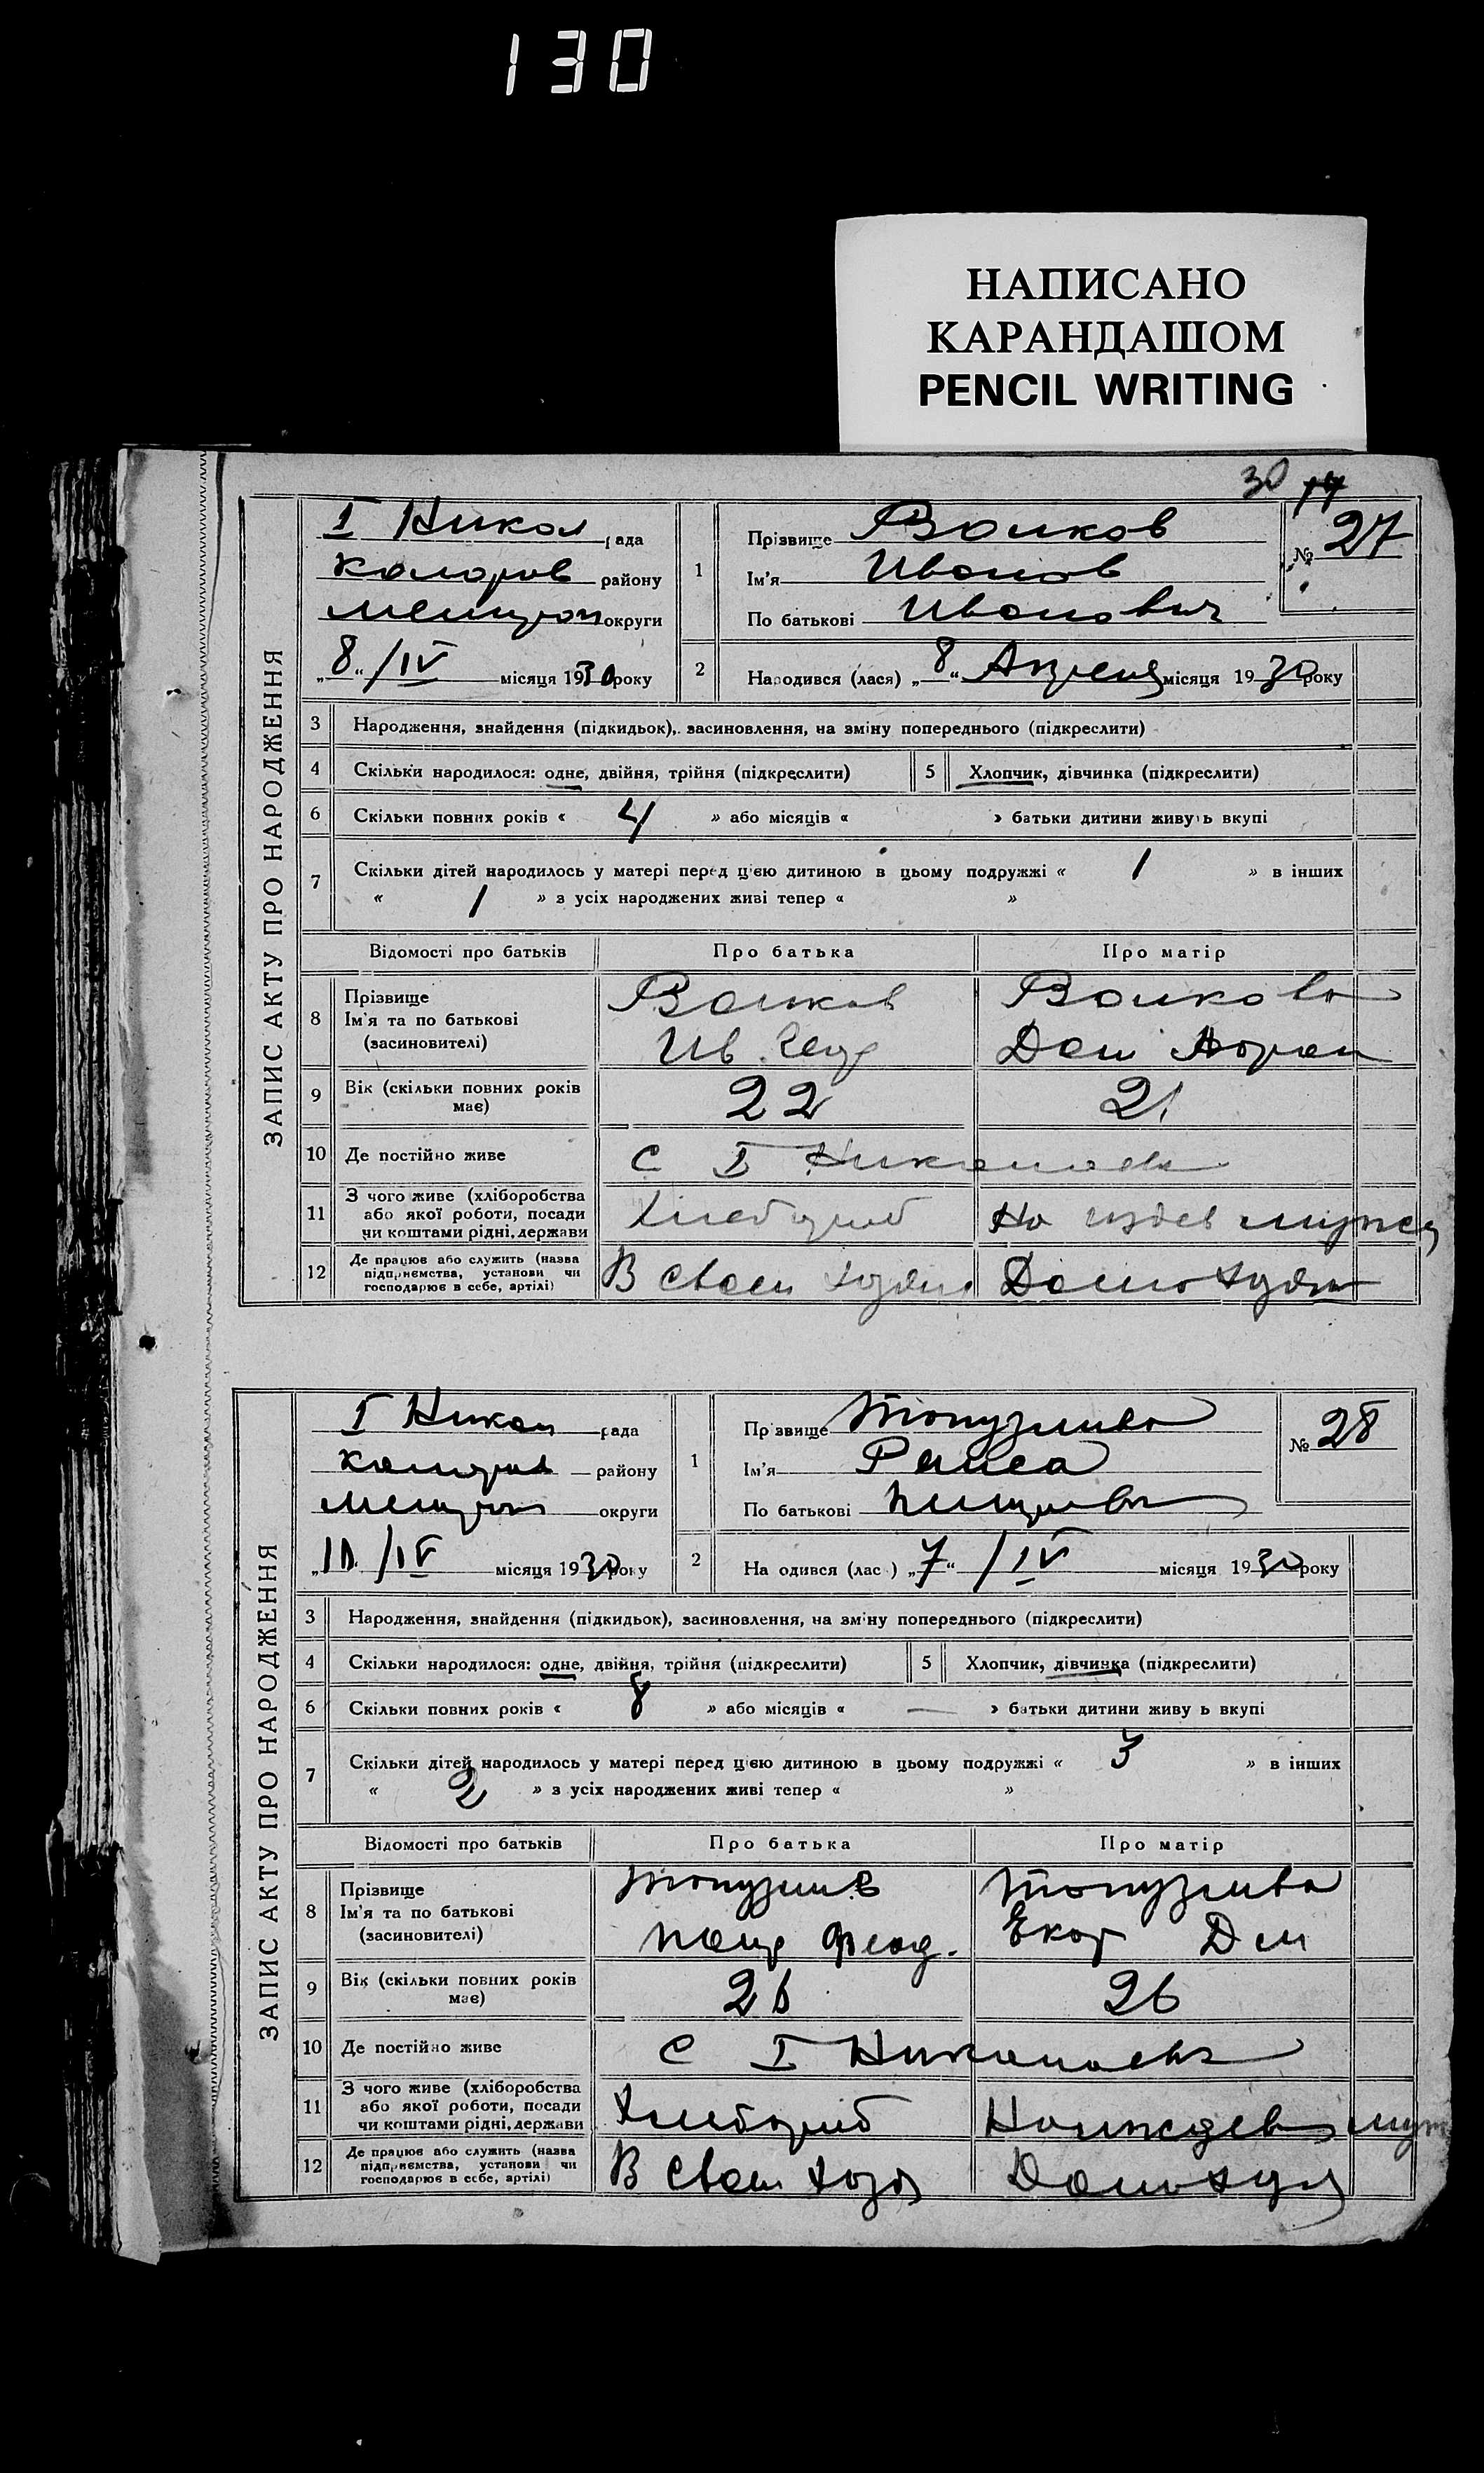 130
НАПИСАНО
КАРАНДАШОМ
PENCIL WRITING
30
ЗАПИС АКТУ ПРО НАРОДЖЕННЯ
I Никол рада
Коларов району
Мелитоп округи
„8“ /IV місяця 1930 року
1
Прізвище Волков
Ім'я Иванов
По батькові Иванович
№ 27
2
Народився (лася) „8“ Апреля місяця 1930 року
3 Народження, знайдення (підкидьок), засиновлення, на зміну попереднього (підкреслити)
4 Скільки народилося: одне, двійня, трійня (підкреслити) 5 Хлопчик, дівчинка (підкреслити)
6 Скільки повних років « 4 » або місяців « » батьки дитини живуть вкупі
7 Скільки дітей народилось у матері перед цією дитиною в цьому подружжі « 1 » в інших
« 1 » з усіх народжених живі тепер « »
Відомості про батьків Про батька Про матір
8 Прізвище
Ім'я та по батькові
(засиновителі)
Волков
Ив
Волкова
Дом
9 Вік (скільки повних років
має)
22 21
10 Де постійно живе с I Николаевка
11 З чого живе (хліборобства
або якої роботи, посади
чи коштами рідні, держави
Хлебороб На иждев мужа
12 Де працює або служить (назва
підприємства, установи чи
господарює в себе, артілі)
В своем хозяй Домохозяй
ЗАПИС АКТУ ПРО НАРОДЖЕННЯ
I Никол рада
Коларов району
Мелитоп округи
„10 /IV місяця 1930 року
1
Прізвище Топузлива
Ім'я Раиса
По батькові
№ 28
2
На одився (лас ) „7“ /IV місяця 1930 року
3 Народження, знайдення (підкидьок), засиновлення, на зміну попереднього (підкреслити)
4 Скільки народилося: одне, двійня, трійня (підкреслити) 5 Хлопчик, дівчинка (підкреслити)
6 Скільки повних років « 8 » або місяців « — » батьки дитини живу ь вкупі
7 Скільки дітей народилось у матері перед цією дитиною в цьому подружжі « 3 » в інших
« 2 » з усіх народжених живі тепер « »
Відомості про батьків Про батька Про матір
8 Прізвище
Ім'я та по батькові
(засиновителі)
Топузлив
Феод.
Топузлива
Екат Дм
9 Вік (скільки повних років
має)
26 26
10 Де постійно живе с I Николаевка
11 З чого живе (хліборобства
або якої роботи, посади
чи коштами рідні, держави
Хлебороб На иждев муж
12 Де працює або служить (назва
підприємства, установи чи
господарює в себе, артілі)
В своем хозя Домохозя